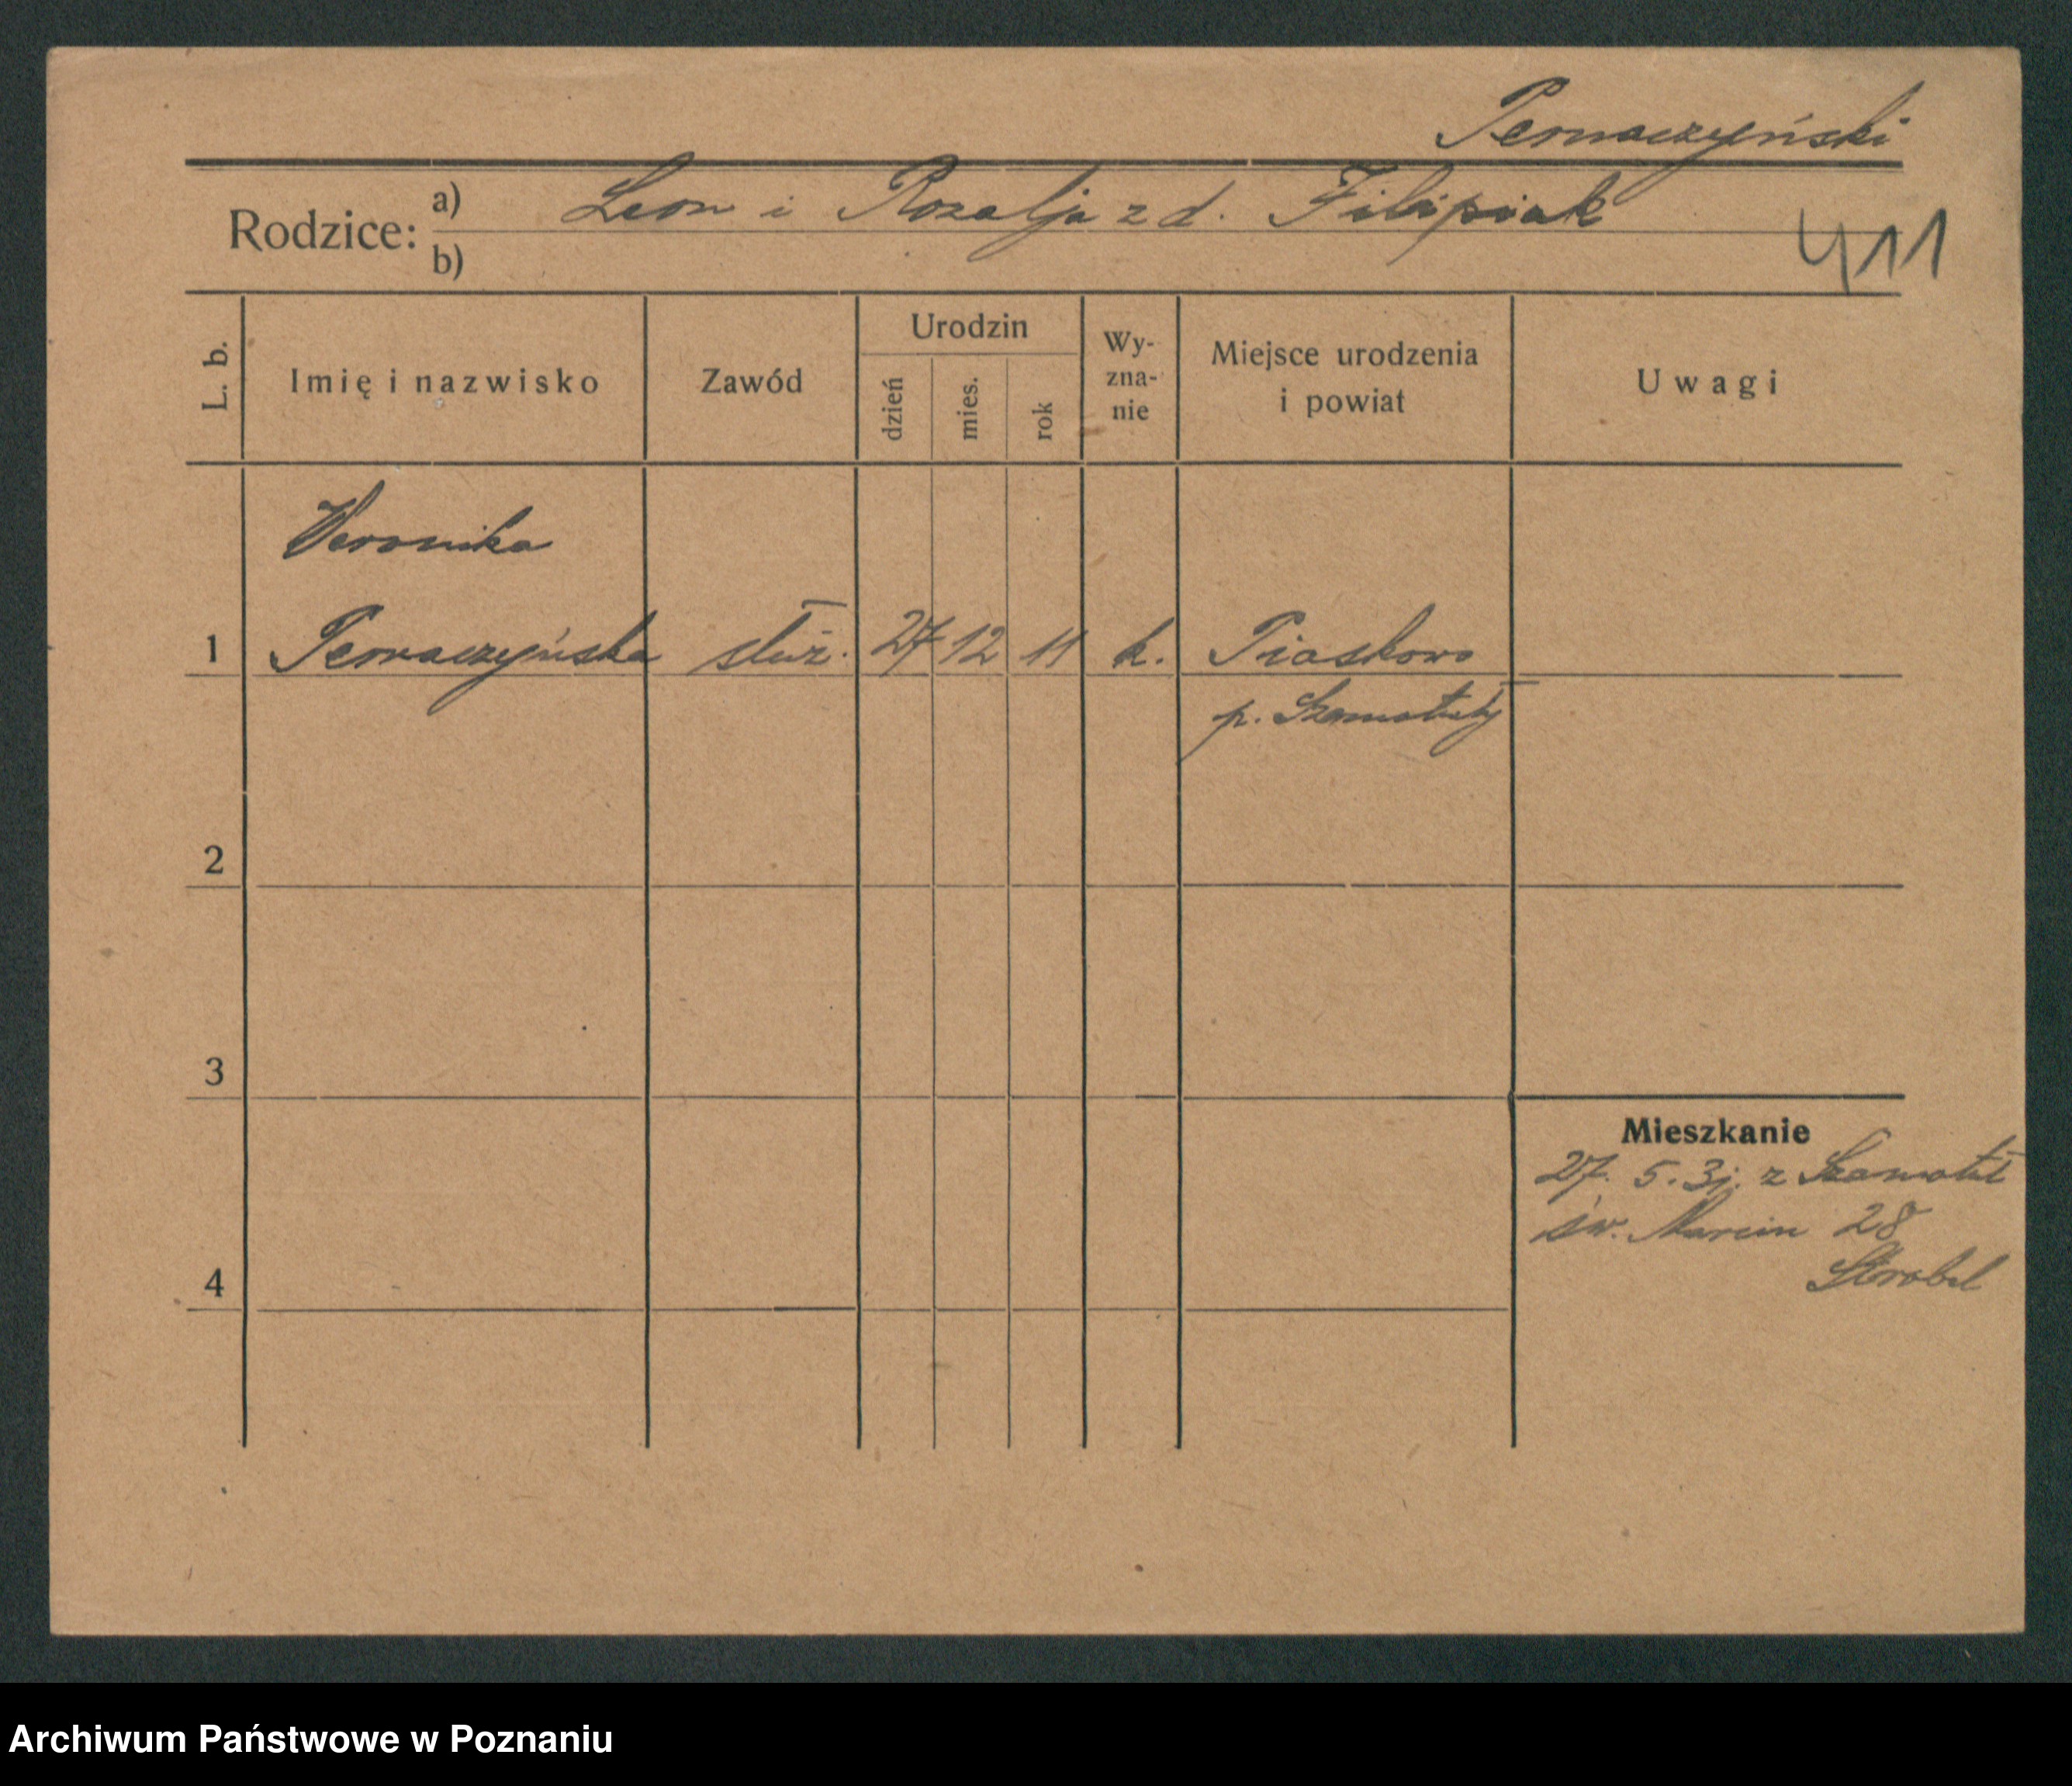 Pernaczyński
Rodzice: a) Leon i Rozalja z d. Filipiak
b)
411
L. b.
Imię i nazwisko
Zawód
Urodzin
dzień
mies.
rok
Wy-
zna-
nie
Miejsce urodzenia
i powiat
Uwagi
Weronika
1 Pernaczyńska służ. 27 12 11 k. Piaskowo
p. Szamotuły
2
3
4
Mieszkanie
27. 5. 31. z Szamotuł
św. Marcin 28
Strobel
Archiwum Państwowe w Poznaniu